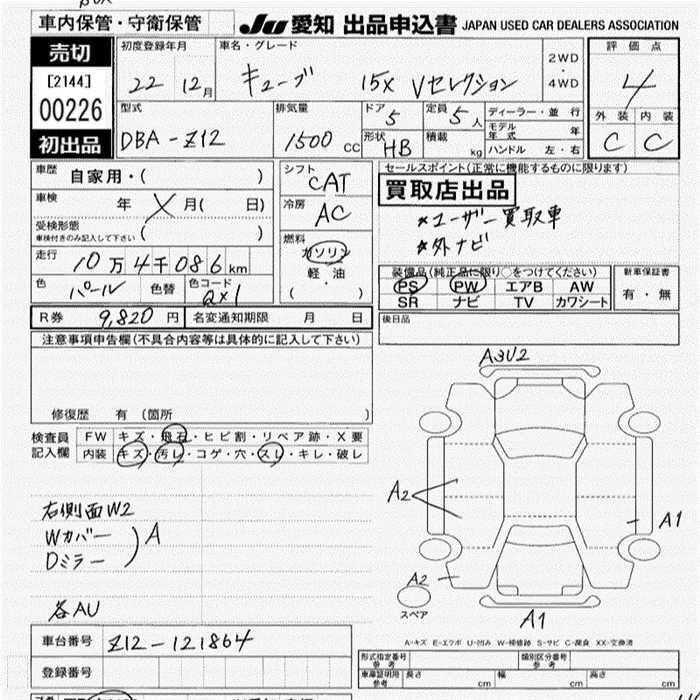 車内保管・守衛保管
JU 愛知 出品申込書 JAPAN USED CAR DEALERS ASSOCIATION
売切
[2144]
00226
初出品
初度登録年月
22 12月
車名・グレード
キューブ 15X Vセレクション
2WD
・
4WD
評価点
4
外装 内装
C C
型式
DBA-Z12
排気量
1500 CC
ドア 5
定員 5人
形状 HB
積載 kg
ディーラー・並行
モデル年式 年
ハンドル 左・右
車歴 自家用・( )
車検 年 X 月( 日)
受検形態
車検付きのみ記入して下さい ( )
走行 10万4千086km
色 パール 色替 色コード QX1
シフト CAT
冷房 AC
燃料
ガソリン
軽・油
( ・ )
セールスポイント(正常に機能するものに限ります)
買取店出品
*ユーザー買取車
*外ナビ
装備品(純正品に限り○をつけてください)
PS PW エアB AW
SR ナビ TV カワシート
新車保証書
有・無
R券 9,820円 名変通知期限 月 日
後日品
注意事項申告欄(不具合内容等は具体的に記入して下さい)
修復歴 有 (箇所 )
検査員記入欄
FW キズ・飛石・ヒビ割・リペア跡・X要
内装 キズ・汚レ・コゲ・穴・スレ・キレ・破レ
右側面W2
Wカバー
Dミラー ) A
各AU
A3U2
A2
A1
A2
スペア
A1
A-キズ E-エクボ U-凹み W-補修跡 S-サビ C-腐食 XX-交換済
車台番号 Z12-121864
登録番号
形式指定番号 参考
類別区分番号 参考
車庫証明用 参考 長さ cm 幅 cm 高さ cm